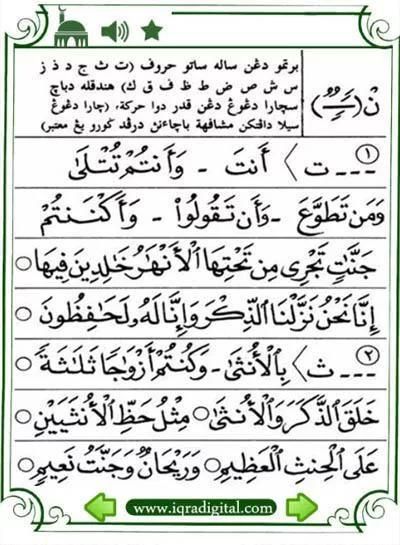 نْ (ـًـٍـٌ)
برتمو دڠن ساله ساتو حروف (ت ث ج د ذ ز
س ش ص ض ط ظ ف ق ك) هندقله دباچ
سچارا دڠوڠ دڠن قدر دوا حركة، (چارا دڠوڠ
سيلا داڤتكن مشافهة باچاءنڽ درڤد ݢورو يڠ معتبر)
١ --- ت ⟩ أَنتَ - وَأَنتُمْ تُتْلَىٰ
وَمَن تَطَوَّعَ - وَأَن تَقُولُوا۟ - وَأَكْنَنتُمْ
جَنَّٰتٍ تَجْرِى مِن تَحْتِهَا ٱلْأَنْهَٰرُ خَٰلِدِينَ فِيهَا ○
إِنَّا نَحْنُ نَزَّلْنَا ٱلذِّكْرَ وَإِنَّا لَهُۥ لَحَٰفِظُونَ ○
٢ --- ث ⟩ بِٱلْأُنثَىٰ - وَكُنتُمْ أَزْوَٰجًا ثَلَٰثَةً ○
خَلَقَ ٱلذَّكَرَ وَٱلْأُنثَىٰ ○ مِثْلُ حَظِّ ٱلْأُنثَيَيْنِ
عَلَى ٱلْحِنثِ ٱلْعَظِيمِ ○ وَرَيْحَانٌ وَجَنَّتُ نَعِيمٍ ○
www.iqradigital.com